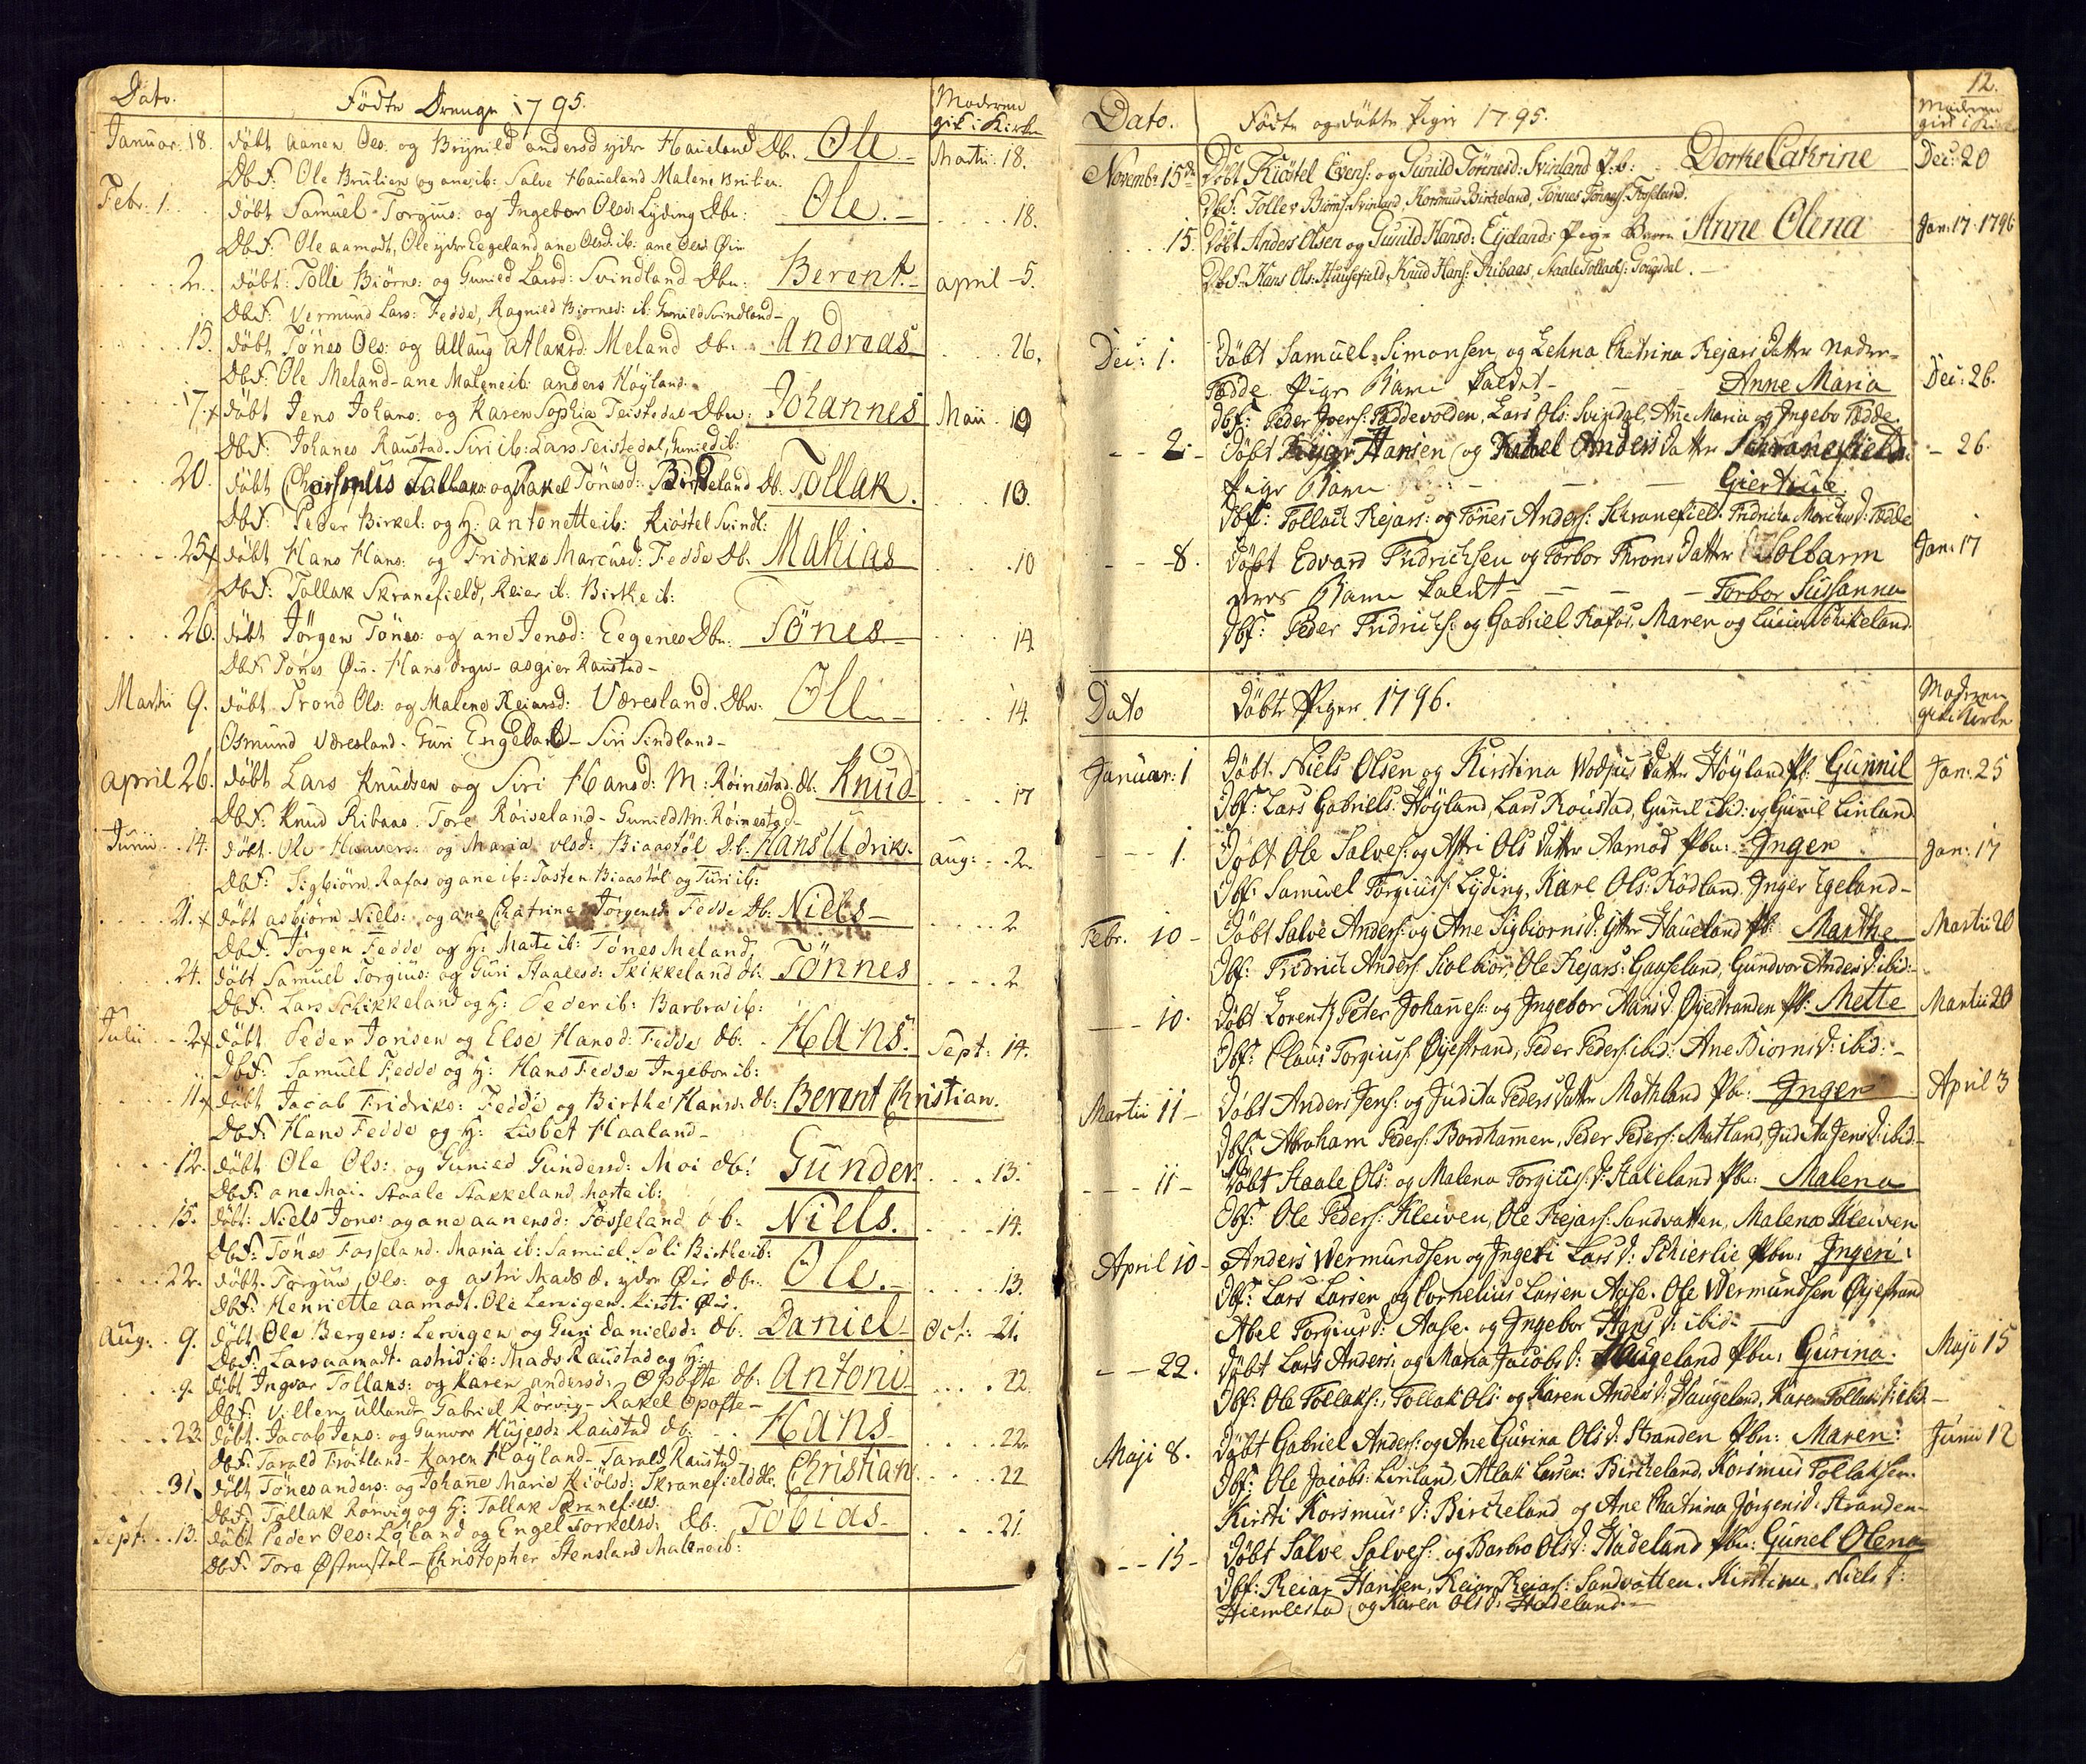 Dato.
Födte Drenge 1795.
Moderen
gik i Kirke
Januar: 18. döbt Aanen Ols: og Brynild anders d ydre Haueland Db. Ole Martii 18.
Dbf: Ole Brulien og ane ib: Salve Haueland Malene
Febr. 1. döbt Samuel Torgius: og Ingebor Olsd: Lyding Dbn: Ole. 18.
Dbf: Ole aamodt, Ole ydre Eegeland ane Olsd: ib: ane Olsd: Öie
2. döbt: Tolle Biörns: og Gunied Larsd: Svindland Dbn: Berent. april 5.
Dbf: Vermund Lars: Fedde, Ragnild Biornsd: ib: Gunild Svindland
15. döbt Tönes Ols: og Allaug Atlaksd: Meland Db: Andreas 26.
Dbf: Ole Meland - ane Malene ib: anders Höyland.
17. döbt Jens Johans: og Karen Sophia Teistedal Dbn: Johannes Maii 10
Dbf: Johanes Raustad. Siri ib: Lars Teistedal, Gunied ib:
20. döbt Tollaks: og Rakel Tönesd: Birkeland Db. Tollak. 10.
Dbf: Peder Birkel: og H: antonette ib: Kiöstel Svindl:
25. döbt Hans Hans: og Fridrike Marcusd: Fedde Db. Mathias 10
Dbf: Tollak Skranefield, Reier ib: Birthe ib:
26. döbt Jörgen Tönes: og ane Jensd: Eegenes Dbn: Tönes 14.
Dbf: Tönes Öie. Hans asgier Raustad
Martii 9. döbt Trond Ols: og Malene Reiarsd: Væresland. Dbn. Ole 14.
Osmund Væresland. Guri Engeland - Siri Sindland
april 26. döbt Lars Knudsen og Siri Hansd: M: Röinestad. db. Knud 17
Dbf: Knud Ribaas. Tore Röiseland - Gunied M: Röinestad
Junii 14. döbt. Ole og Maria olsd: Biaastöl D:b: Hans Udrik. aug: 2.
Dbf: Sigbiörn Rafos og ane ib: Tosten Biaastöl og Turi ib:
21. döbt asbiörn Niels: og ane Chatrine Jörgensd: Fedde Db: Niels 2
Dbf: Jörgen Fedde og H: Mate ib: Tönes Meland
24. döbt Samuel Torgius: og Guri Staalesd: Skikkeland db: Tönnes 2
Dbf: Lars Schikkeland og H: Peder ib: Barbra ib:
Julii 2. döbt Peder Jonsen og Else Hansd: Fedde db: Hans. Sept: 14.
Dbf: Samuel Fedde og H: Hans Fedde Ingebor ib:
11. döbt Jacob Fridriks: Fedde og Birthe Hansd: db: Berent Christian.
Dbf: Hans Fedde og H: Lisbet Haaland
12. döbt Ole Ols: og Gunied Gundersd: Moi db: Gunder. 13.
Dbf: ane Moi. Staale Stakkeland, Marte ib:
15. döbt: Niels Jons: og ane aanensd: Fosseland db: Niels. 14.
Dbf: Tönes Fosseland. Maria ib: Samuel Soli Birthe ib:
22. döbt. Torgius Ols: og astri Mads d. ydre Öie db: Ole. 13.
Dbf: Henriette aamodt. Ole Lervigen. Kirsti Öie.
Aug. 9. döbt Ole Bergers: Lervigen og Guri Danielsd: db: Daniel Oct: 21.
Dbf: Lars aamodt. astrid ib: Mads Raustad og H:
9. döbt Ingvar Tollaks: og Karen andersd: Opofte db: Antoni 22.
Dbf: Villem Ulland. Gabriel Rörvig - Rakel Opofte
23. döbt. Jacob Jens: og Gunvor Raustad db. Hans 22.
Dbf: Tarald Fröitland - Karen Höyland - Tarald Raustad
31. döbt Tönes anders: og Johanne Marie Skranefield db. Christian 22
Dbf: Tollak Rörvig og H: Tollak Skranefield.
Sept: 13. döbt Peder Ols: Löland og Engel Torkelsd: db: Tobias 21.
Dbf: Tore - Christopher Stensland Malene ib:
12.
Dato. Födte og döbte Piger 1795.
Moderen
gik i Kirke
Novembr: 15de Döbt Kiöstel Evens: og Gunild Törresd: Svinland P:b: Dorte Catrine Dec: 20
Dbf: Tollev Biörns: Svinland, Korsmus Bircheland, Tönnes Tönnes: Röiseland.
15. Döbt Anders Olsen og Gunild Hansd: Eijeland: Pige Barn Anne Olena Jan: 17. 1796
Dbf: Hans Ols: Hausefield, Knud Hans: Ribaas, Staale Tollachs: Gongsdal.
Dec: 1. Döbt Samuel Simonsen, og Lehna Chatrina Rejars Datter Neder-
Fædde Pige Barn kaldet Anne Maria Dec: 26.
Dbf: Peder Ivers: Fæddevolden, Lars Ols: Svindal, Anne Maria og Ingebor Fædde.
2. Döbt Rejer Hansen og Rakel Anders Datter Schranefield 26.
Pige Barn Giertrue
Dbf: Tollach Rejars: og Tönnes Anders: Schranefield. Fridricha Marchus D: Fædde
8. Döbt Edvard Fridrichsen og Torbor Throns Datter Solbarm Jan: 17
deres Barn kaldet Torbor Sussanna
Dbf: Peder Fridrichs: og Gabriel Rafos, Maren og Lucia Schikeland.
Dato Döbte Piger 1796.
Moderen
gik i Kirke
Januar: 1 Döbt. Niels Olsen og Kirstina Wodjus Datter Höyland Pb: Gunnil Jan: 25
Dbf: Lars Gabriels: Höyland, Lars Roustad, Gunnil ibid: og Gunnil Linland
1. Döbt Ole Salves: og Astri Ols Datter Aamod Pbn: Inger Jan: 17
Dbf: Samuel Torgiuss: Lyding, Karl Ols: Rödland, Inger Egeland
Febr. 10 Döbt Salve Anders: og Ane Sigbiorns D: ytre Haueland Pb: Marthe Martii 20
Dbf: Fridrich Anders: Siolbior, Ole Rejars: Gaaseland, Gundvor Anders D: ibid:
10. Döbt Lorentz Peter Johannes: og Ingebor Hans D. Öyestranden Pb: Mette Martii 20
Dbf: Claus Torgiuss: Öyestrand, Peder Peders: ibid: Ane Biorns D: ibid:
Martii 11 Döbt Anders Jens: og Judita Peders Datter Mathland Pb: Inger April 3
Dbf: Abraham Peders: Bordhammen, Peder Peders: Matland, Judita Jens D: ibid:
11 Döbt Staale Ols: og Malena Torgiuss: D: Staleland Pbn: Malena
Dbf: Ole Peders: Kleiven, Ole Rejars: Sandvatten, Malena Kleiven
April 10 Anders Wermundsen og Ingeri Lars D: Schierlie Pbn: Ingeri:
Dbf: Lars Larsen og Cornelius Larsen Aase. Ole Wermundsen Öyestrand
Abel Torgius D: Aase. og Ingebor Hans D: ibid:
22. Döbt Lars Anders: og Maria Jacobs D: Haugeland Pbn: Gurina. Maji 15
Dbf: Ole Tollaks:, Tollak Ols: og Karen Anders D: Haugeland, Karen Tollaks D: ibid.
Maji 8. Döbt Gabriel Anders: og Ane Gurina Ols D: Stranden Pbn: Maren: Junii 12
Dbf: Ole Jacobs: Linland, Atlak Larsen: Bircheland, Korsmus Tollaksen.
Kirsti Korsmus D: Bircheland og Ane Chatrina Jörgens D: Stranden
15 Döbt Salve Salves: og Barbro Ols D: Stadeland Pbn: Gunel Olena
Dbf: Reiar Hansen, Reiar Reiars: Sandvatten. Kirstine Niels D:
Hiemlestad og Karen Ols D: Stadeland.